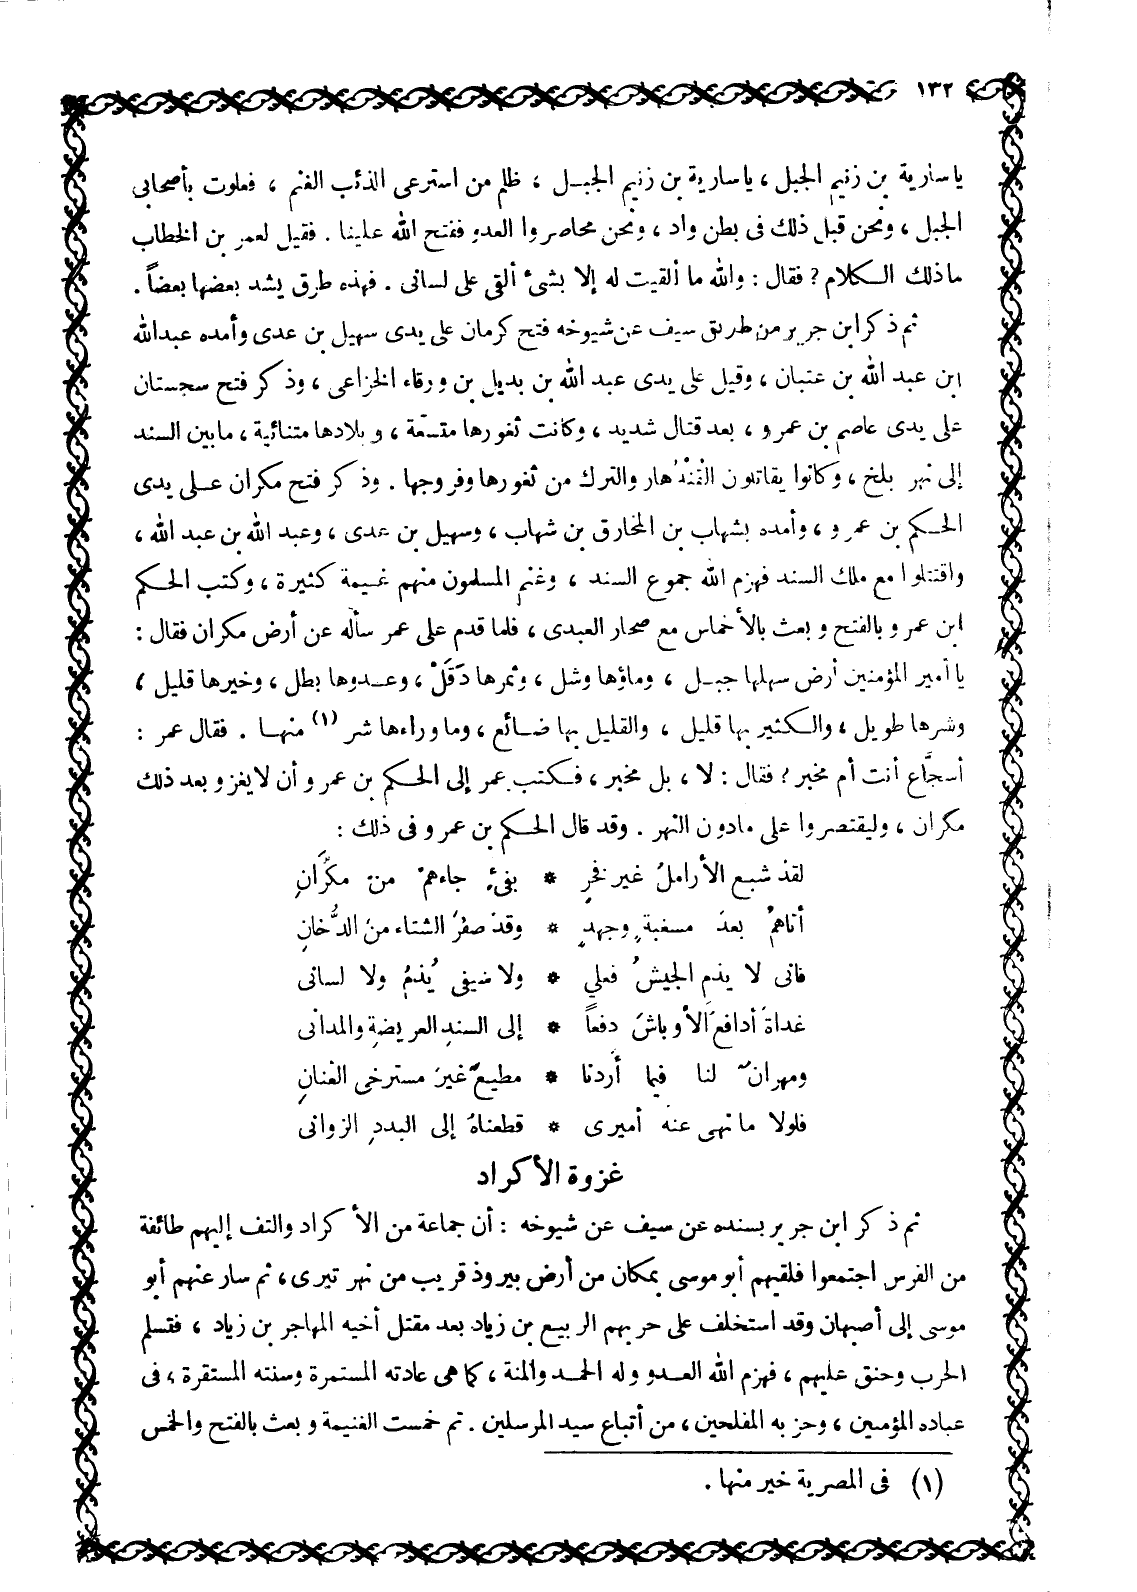 ١٣٢
ياسارية بن زنيم الجبل ، ياسارية بن زنيم الجبـل ، ظلم من استرعى الذئب الغنم ، فعلوت بأصحابى
الجبل ، ونحن قبل ذلك فى بطن واد ، ونحن محاصروا العدو ففتح الله علينا . فقيل لعمر بن الخطاب
ماذلك الـكلام ؟ فقال : والله ما ألقيت له إلا بشئ ألقى على لسانى . فهذه طرق يشد بعضها بعضاً .
ثم ذكر ابن جرير من طريق سيف عن شيوخه فتح كرمان على يدى سهيل بن عدى وأمده عبدالله
ابن عبد الله بن عتبان ، وقيل على يدى عبد الله بن بديل بن ورقاء الخزاعى ، وذكر فتح سجستان
على يدى عاصم بن عمرو ، بعد قتال شديد ، وكانت ثغورها متسعة ، وبلادها متنائية ، مابين السند
إلى نهر بلخ ، وكانوا يقاتلون القُنْدُهار والترك من ثغورها وفروجها . وذكر فتح مكران عـلى يدى
الحـكم بن عمرو ، وأمده بشهاب بن المخارق بن شهاب ، وسهيل بن عدى ، وعبد الله بن عبد الله ،
واقتتلوا مع ملك السند فهزم الله جموع السند ، وغنم المسلمون منهم غنيمة كثيرة ، وكتب الحـكم
ابن عمرو بالفتح وبعث بالأخماس مع صحار العبدى ، فلما قدم على عمر سأله عن أرض مكران فقال :
يا أمير المؤمنين أرض سهلها جبـل ، وماؤها وشل ، وثمرها دَقَلْ ، وعـدوها بطل ، وخيرها قليل ،
وشرها طويل ، والـكثير بها قليل ، والقليل بها ضـائع ، وما وراءها شر (١) منهـا . فقال عمر :
أسجَّاع أنت أم مخبر ؟ فقال : لا ، بل مخبر ، فـكتب عمر إلى الحـكم بن عمرو أن لايغزو بعد ذلك
مكران ، وليقتصروا على مادون النهر . وقد قال الحـكم بن عمرو فى ذلك :
لقد شبع الأراملُ غير فخرٍ * بفئٍ جاءهمْ من مكَّرانِ
أتاهمُ بعدَ مسغبةٍ وجهدٍ * وقدْ صفرَ الشتاء منَ الدُّخانِ
فانى لا يذم الجيشُ فعلي * ولا ضيفى يُذمُ ولا لسانى
غداةَ أدافع الأوباشَ دفعاً * إلى السندِ العريضةِ والمدانى
ومهرانٌ لنا فيما أردنا * مطيعٌ غيرَ مسترخى العْنانِ
فلولا ما نهى عنه أميرى * قطعناهُ إلى البددِ الزوانى
غزوة الأكراد
ثم ذكر ابن جرير بسنده عن سيف عن شيوخه : أن جماعة من الأكراد والتف إليهم طائفة
من الفرس اجتمعوا فلقيهم أبو موسى بمكان من أرض بيروذ قريب من نهر تيرى ، ثم سار عنهم أبو
موسى إلى أصبهان وقد استخلف على حربهم الربيع بن زياد بعد مقتل أخيه المهاجر بن زياد ، فتسلم
الحرب وحنق عليهم ، فهزم الله العـدو وله الحمـد والمنة ، كما هى عادته المستمرة وسنته المستقرة ، فى
عباده المؤمنين ، وحزبه المفلحين ، من أتباع سيد المرسلين . ثم خمست الغنيمة وبعث بالفتح والخمس
(١) فى المصرية خير منها .